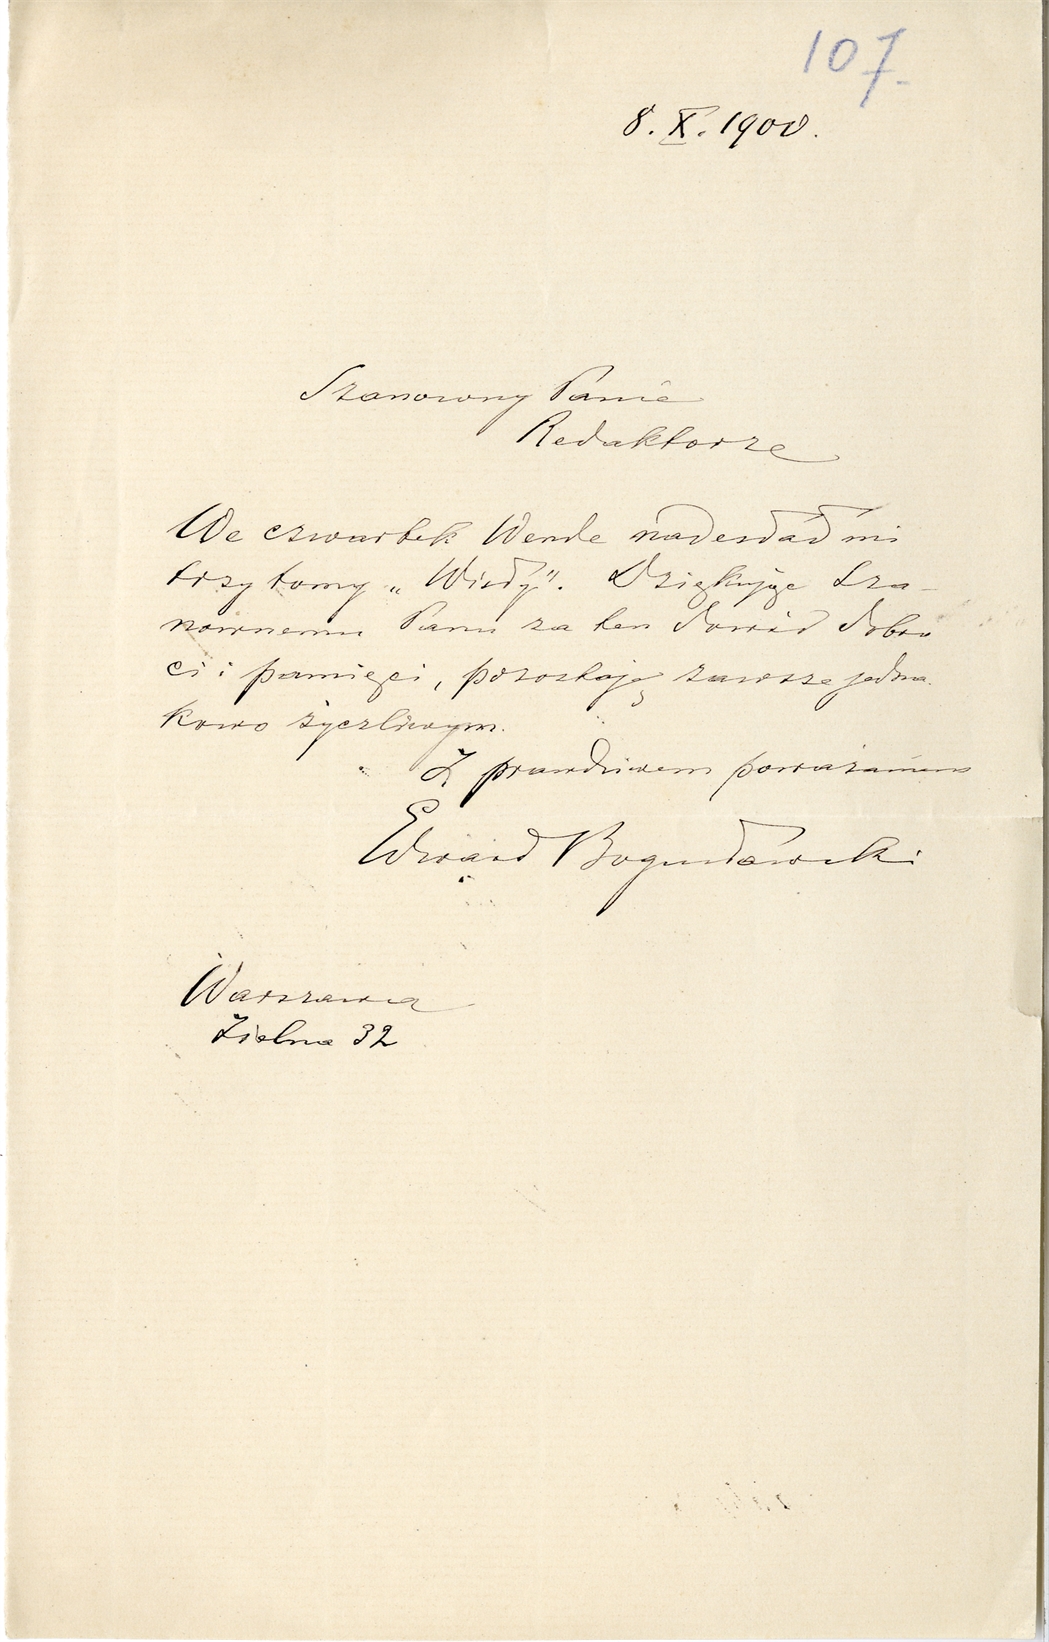 107.
8. X. 1900.
Szanowny Panie
Redaktorze
We czwartek Wende nadesłał mi
trzy tomy „Wisły". Dziękuję Sza-
nownemu Panu za ten dowód dobro
ci i pamięci, pozostaję zawsze jedna-
kowo życzliwym.
Z prawdziwem poważaniem
Edward Bogusławski
Warszawa
Zielna 32